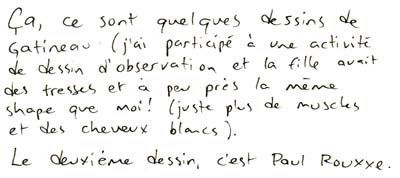 Ça, ce sont quelques dessins de
Gatineau (j'ai participé à une activité
de dessin d'observation et la fille avait
des tresses et à peu près la même
shape que moi! (juste plus de muscles
et des cheveux blancs).
Le deuxième dessin, c'est Paul Rouxxe.